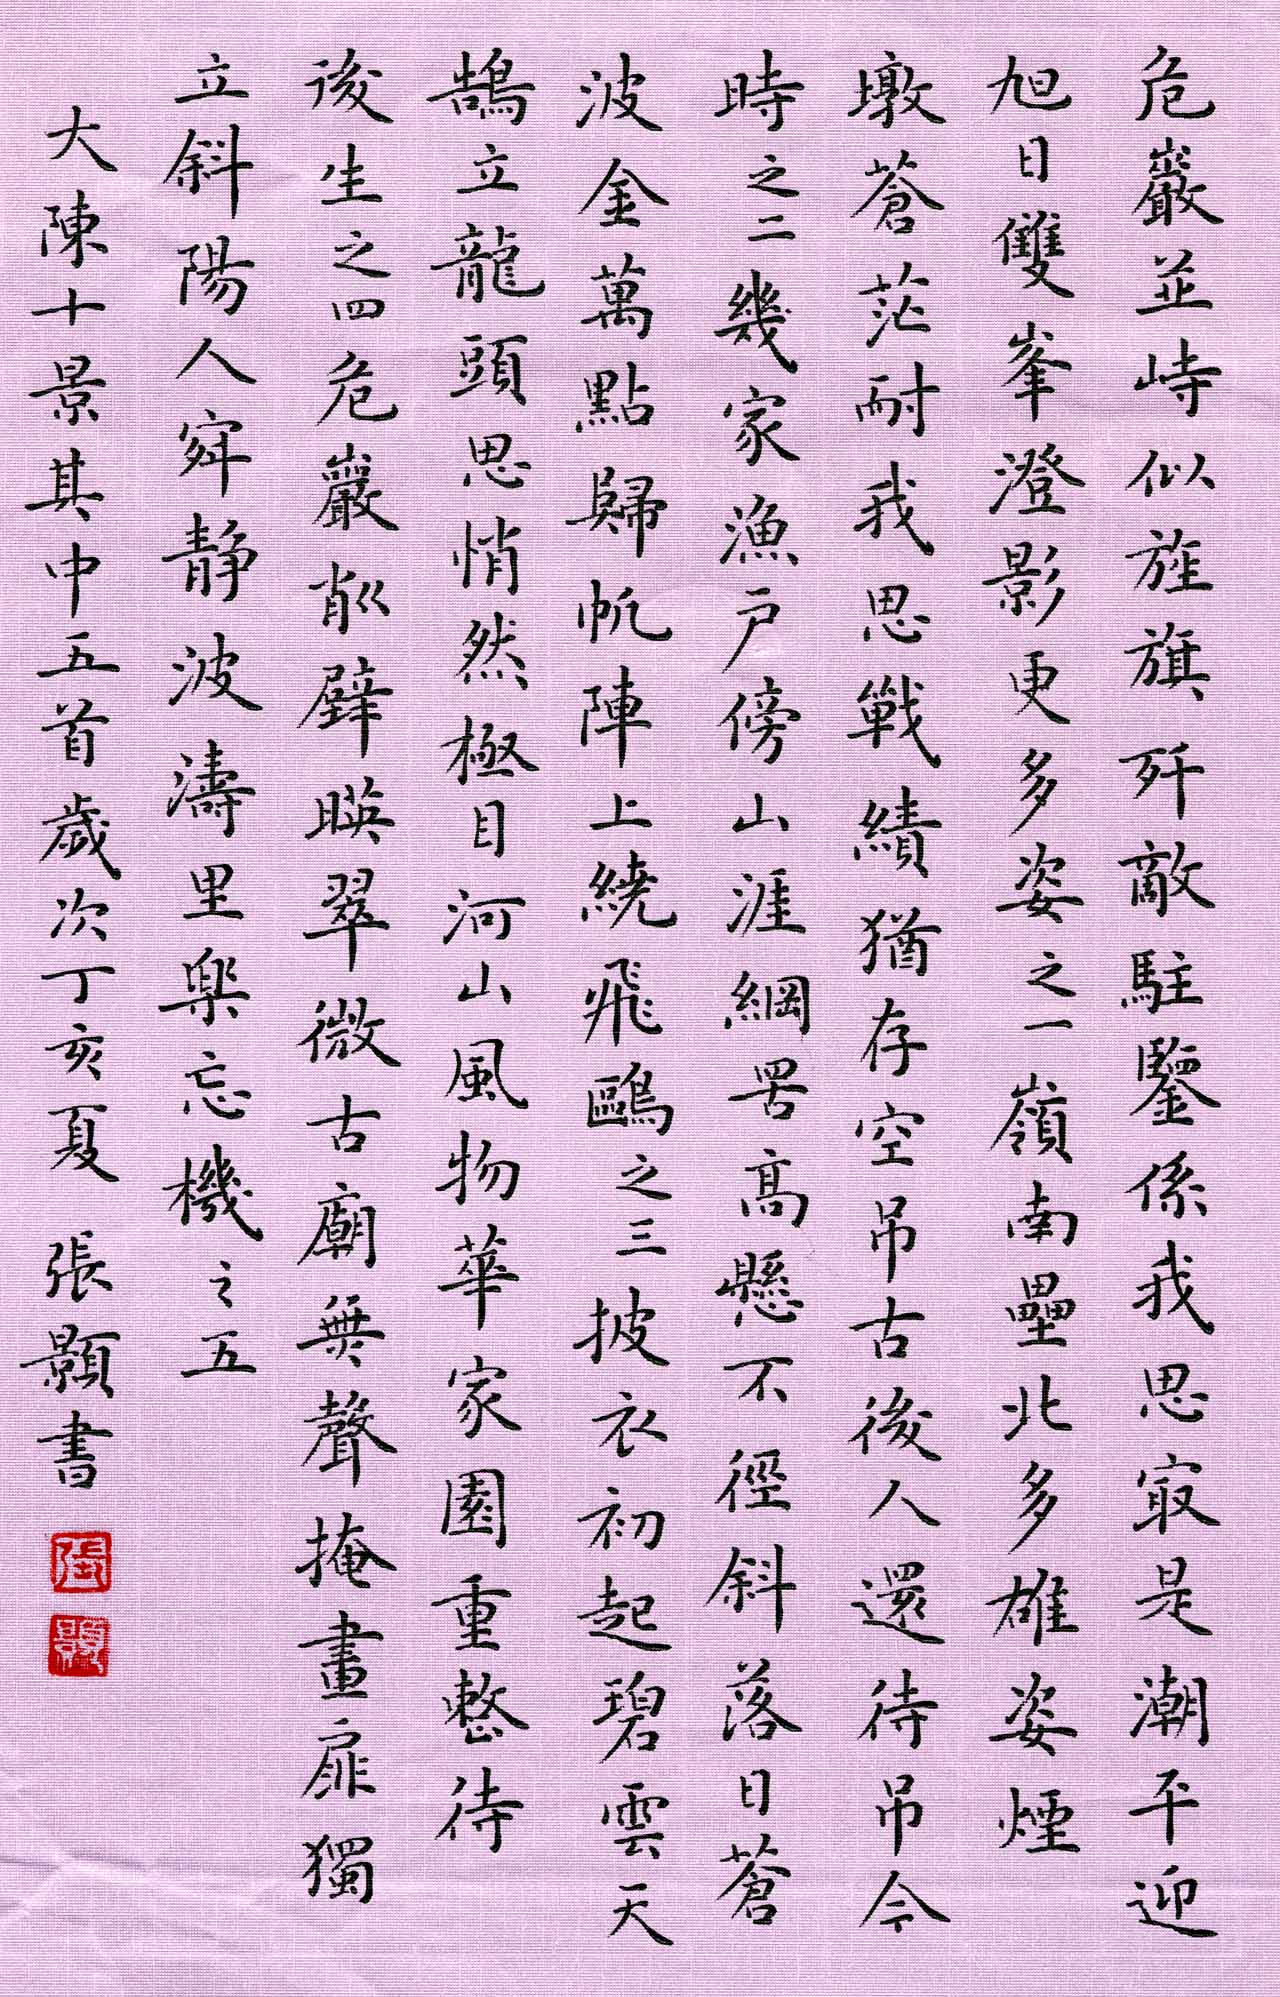 危巖並峙似旌旗歼敵駐鑒係我思寂是潮平迎
旭日雙峯澄影更多姿之一嶺南壘北多雄姿煙
墩蒼茫耐我思戰績猶存空吊古後人還待吊今
時之二幾家漁戶傍山涯網罟高懸不徑斜落日蒼
波金萬點歸帆陣上繞飛鷗之三披衣初起碧雲天
鵠立龍頭思悄然極目河山風物華家園重整待
後生之四危巖削壁暎翠微古廟無聲掩畫扉獨
立斜陽人穽静波濤里樂忘機之五
大陳十景其中五首歲次丁亥夏 張顥書
張
顥